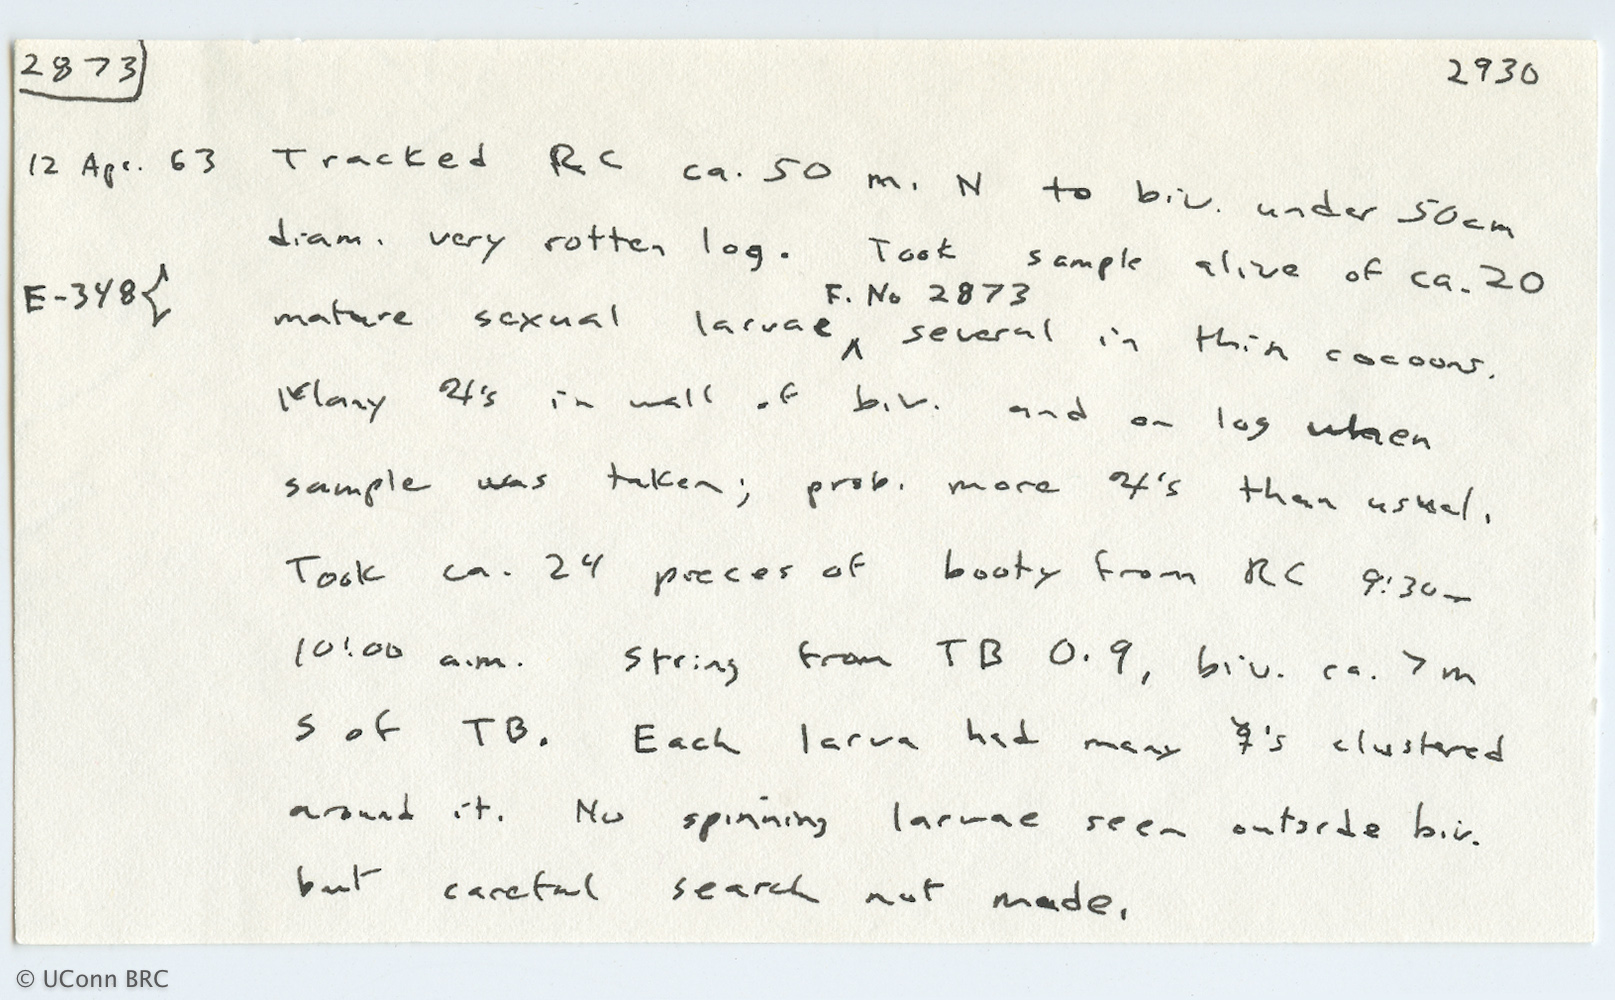 2873 2930
12 Apr. 63 Tracked RC ca. 50 m. N to biv. under 50cm
diam. very rotten log. Took sample alive of ca. 20
E-348{ mature sexual larvae ^ F. No 2873 several in thin cocoons.
Many ☿'s in wall of biv. and on log when
sample was taken; prob. more ☿'s than usual.
Took ca. 24 pieces of booty from RC 9:30-
10:00 a.m. String from TB 0.9, biv. ca. 7m
S of TB. Each larva had many ☿'s clustered
around it. No spinning larvae seen outside biv.
but careful search not made.
© UConn BRC